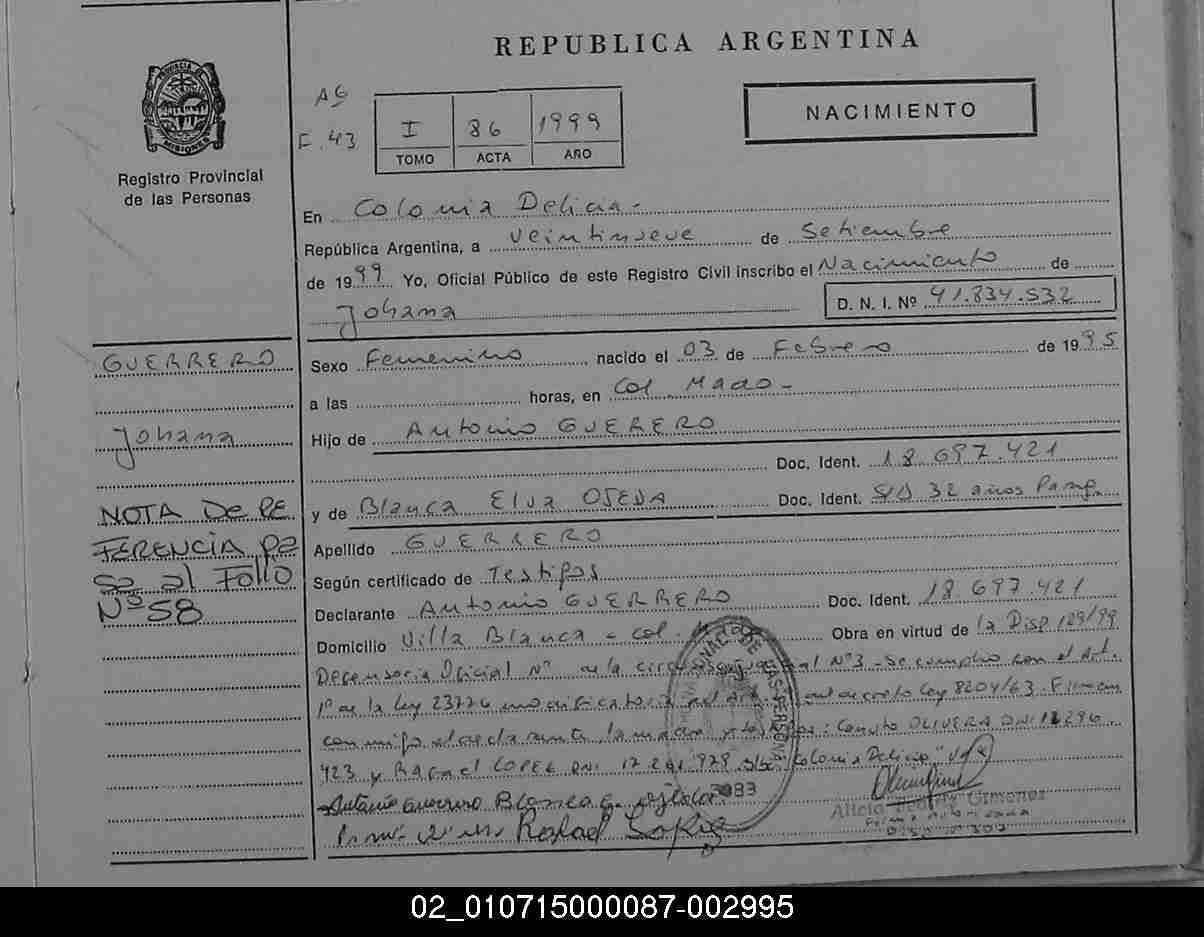 REPUBLICA ARGENTINA
PROVINCIA DE MISIONES
Registro Provincial
de las Personas
F. 43
I 86 1999
TOMO ACTA AÑO
NACIMIENTO
En Colonia Delicia.-
República Argentina, a veintinueve de Setiembre
de 1999 Yo, Oficial Público de este Registro Civil inscribo el Nacimiento de
Johana D. N. I. Nº 41.834.532
GUERRERO
Johana
NOTA DE RE
FERENCIA pa
sa al Folio
Nº 58
Sexo Femenino nacido el 03 de Febrero de 1995
a las horas, en Col. Mado -
Hijo de Antonio GUERERO
Doc. Ident. 18.697.421
y de Blanca Elva OJEDA Doc. Ident. S/D 32 años Parag.
Apellido GUERRERO
Según certificado de Testigos
Declarante Antonio GUERRERO Doc. Ident. 18.697.421
Domicilio Villa Blanca - Col. Obra en virtud de la Disp 129/99
Defensoria Oficial Nº de la Nº 3 - Se cumplio con el Art.
1º de la Ley 23776 modificatoria del decreto Ley 8204/63. Firman
conmigo el declarante, la madre y testigos: OLIVERA DNI
423 y Rafael LOPEZ DNI 978 "Colonia Delicia"
Antonio Guerrero Blanca E. Ojeda 2083
Rafael
Alicia Gimenez
Firma Autorizada
02_010715000087-002995